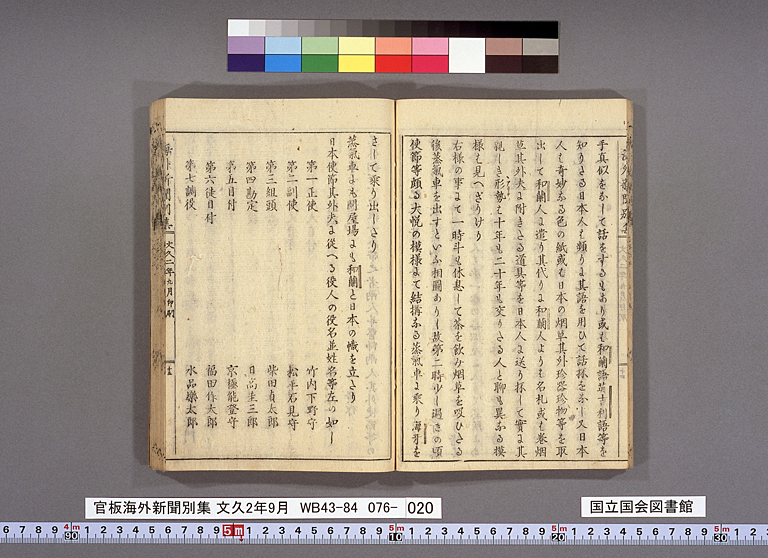 手真似をかして話をするもあり或は和蘭語英吉利語等を
知りたる日本人も頗りに其語を用ひて話抔をかし又日本
人も奇妙なる色の紙或は日本の烟草其外珍器珍物等を取
出して和蘭人に遣り其代りに和蘭人よりも名札或は巻烟
草其外夫に附きたる道具等を日本人に送り抔して實に其
親しき形勢も十年も二十年も交りたる人と聊も異なる模
様も見へざりけり
右様の事にて一時斗も休息して茶を飲み烟草を吸ひたる
後蒸氣車を出すといふ相圖ありし故第二時少し過きの頃
使節等頗る大悦の模様にて結構なる蒸氣車に乗り海牙を
さして乗り出したり
蒸氣車にも問屋場にも和蘭と日本の幟を立たり
日本使節其外夫に從へる役人の役名並姓名等左の如し
第一正使 竹内下野守
第二副使 松平石見守
第三組頭 柴田貞太郎
第四勘定 日高圭三郎
第五目付 京極能登守
第六徒目付 福田作太郎
第七調役 水品樂太郎
文久二年九月印刷
官板海外新聞別集 文久2年9月 WB43-84 076-020
国立国会図書館